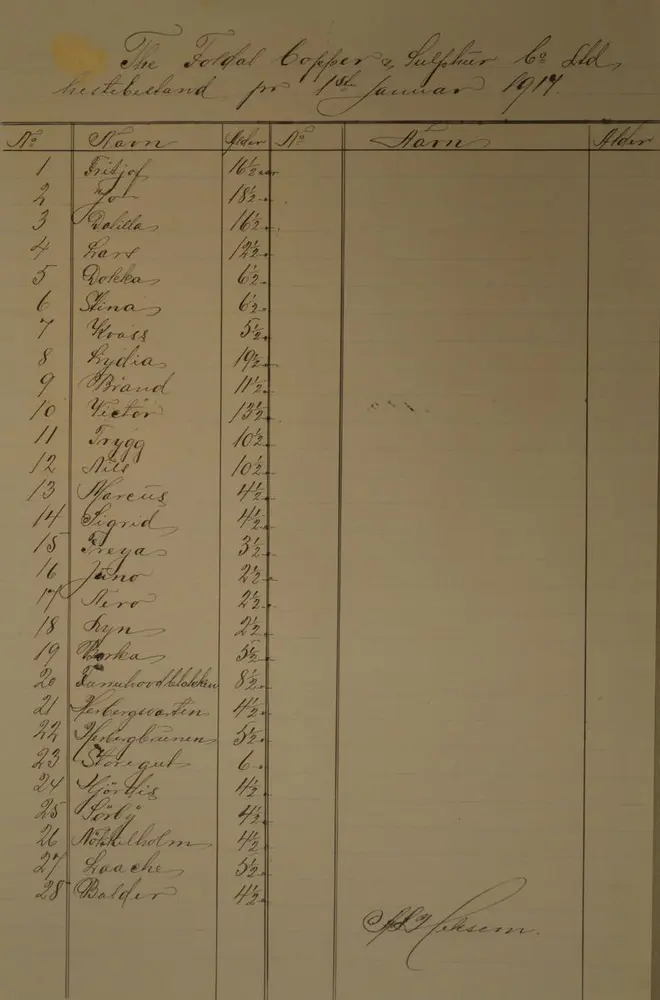 The Foldal Copper & Sulphur Co Ltd
hestebestand pr 1ste Januar 1917.
No Navn Alder No Navn Alder
1 Fritjof 16½ aar
2 Jo 18½ "
3 Dalilla 16½ "
4 Lars 12½ "
5 Dokka 6½ "
6 Stina 6½ "
7 Kvass 5½ "
8 Lydia 19½ "
9 Brand 11½ "
10 Victor 13½ "
11 Trygg 10½ "
12 Nils 10½ "
13 Marcus 4½ "
14 Sigrid 4½ "
15 Freya 3½ "
16 Juno 2½ "
17 Nero 2½ "
18 Lyn 2½ "
19 Borka 5½ "
20 8½ "
21 Herbergsvarten 4½ "
22 Herbergbrunen 5½ "
23 Storegut 6 "
24 Hjördis 4½ "
25 Sörby 4½ "
26 4½ "
27 Laache 5½ "
28 Balder 4½ "